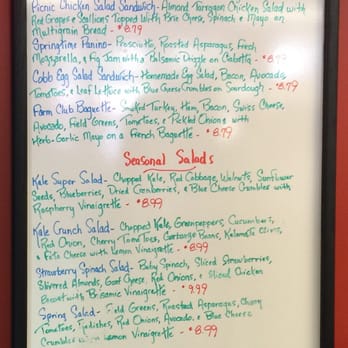 Picnic Chicken Salad Sandwich- Almond Tarragon Chicken Salad with
Red Grapes & Scallions Topped With Brie Cheese, Spinach & Mayo on
Multigrain Bread - $8.79
Springtime Panino- Prosciutto, Roasted Asparagus, Fresh
Mozzarella, & Fig Jam with a Balsamic Drizzle on Ciabatta - $8.79
Cobb Egg Salad Sandwich- Homemade Egg Salad, Bacon, Avocado,
Tomatoes, & Leaf Lettuce with Blue Cheese Crumbles on Sourdough - $8.79
Farm Club Baguette- Smoked Turkey, Ham, Bacon, Swiss Cheese,
Avocado, Field Greens, Tomatoes, & Pickled Onions with
Herb-Garlic Mayo on a French Baguette - $8.79
Seasonal Salads
Kale Super Salad- Chopped Kale, Red Cabbage, Walnuts, Sunflower
Seeds, Blueberries, Dried Cranberries, & Blue Cheese Crumbles with
Raspberry Vinaigrette - $8.99
Kale Crunch Salad- Chopped Kale, Greenpeppers, Cucumbers,
Red Onion, Cherry Tomatoes, Garbanzo Beans, Kalamata Olives,
& Feta Cheese with Lemon Vinaigrette - $8.99
Strawberry Spinach Salad- Baby Spinach, Sliced Strawberries,
Slivered Almonds, Goat Cheese, Red Onions, & Sliced Chicken
Breast with Balsamic Vinaigrette - $9.99
Spring Salad- Field Greens, Roasted Asparagus, Cherry
Tomatoes, Radishes, Red Onions, Avocado, & Blue Cheese
Crumbles with Lemon Vinaigrette - $8.99